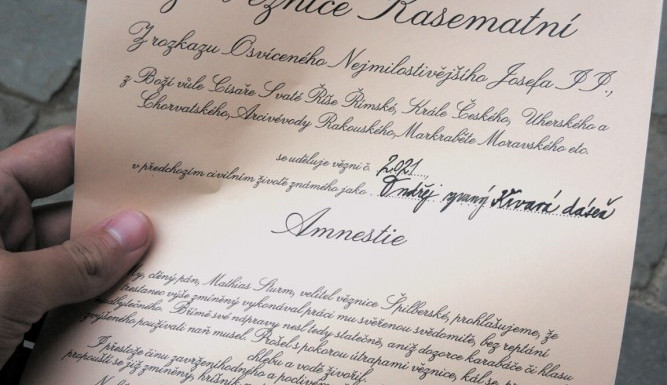 Věznice Kasematní
Z rozkazu Osvíceného Nejmilostivějšího Josefa II.,
z Boží vůle Císaře Svaté Říše Římské, Krále Českého, Uherského a
Chorvatského, Arcivévody Rakouského, Markraběte Moravského etc.
se uděluje vězni č. 2021
v předchozím civilním životě známého jako Ondřej zvaný Křivará dáseň
Amnestie
ctěný pán, Mathias Sturm, velitel věznice Špilberské, prohlašujeme, že
trestanec výše zmíněný vykonával práci mu svěřenou svědomitě, bez reptání
nadbytečného. Břímě své nápravy nesl tedy statečně, aniž dozorce karabáče či hlasu
zvýšeného používati naň musel. Prošel s pokorou útrapami věznice, kdš se o
chlebu a vodě živořil.
I přestože činu zavrženíhodného a
propouští se již zmíněný, hříšník